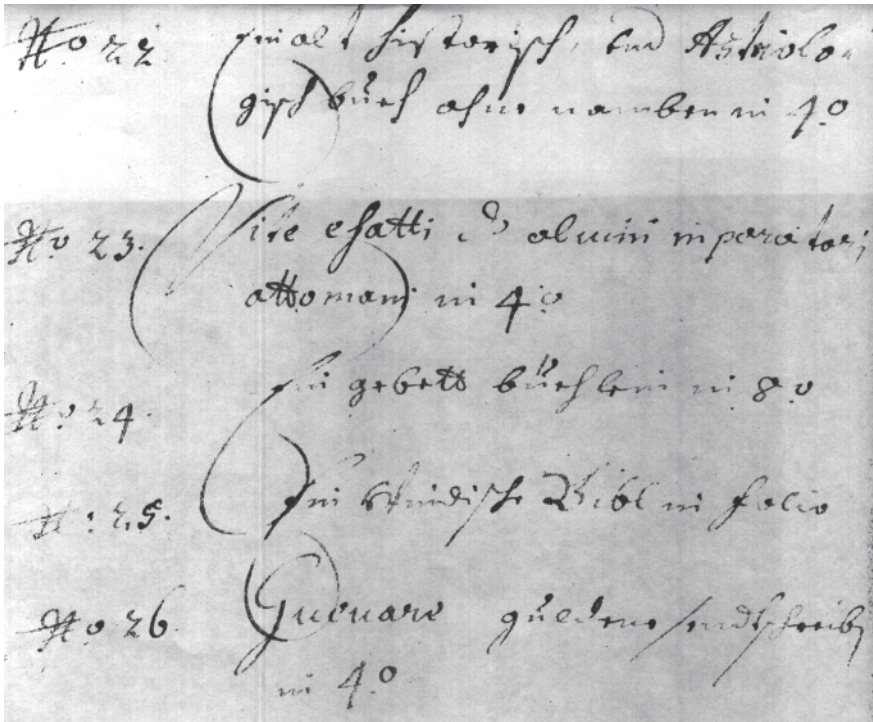 No 22 Ein alt historisch, und Astrolo-
gisch büech ohne namben in 4o
No 23. Vite e fatti d'alcuni imperatori
ottomani in 4o
No 24. Ein gebett büechlein in 8o
No 25. Ein Windische Bibl in folio
No 26. Gueuare güldene sendtschreib
in 4o